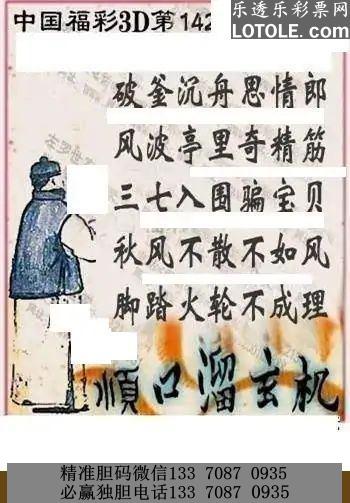 中国福彩3D第142
乐透乐彩票网
LOTOLE.COM
破釜沉舟思情郎
风波亭里奇精筋
三七入围骗宝贝
秋风不散不如风
脚踏火轮不成理
顺口溜玄机
精准胆码微信133 7087 0935
必赢独胆电话133 7087 0935